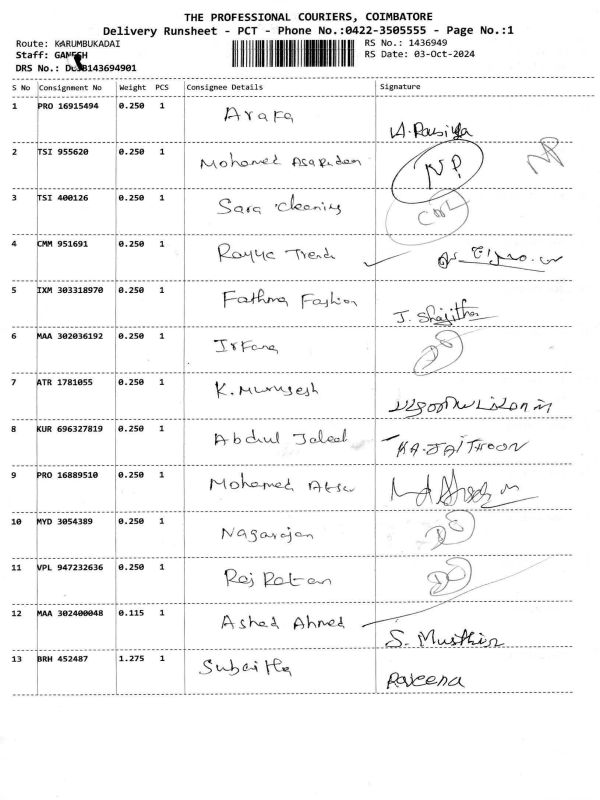 THE PROFESSIONAL COURIERS, COIMBATORE
Delivery Runsheet - PCT - Phone No.:0422-3505555 - Page No.:1
Route: KARUMBUKADAI RS No.: 1436949
Staff: GANESH RS Date: 03-Oct-2024
DRS No.: 143694901
S No Consignment No Weight PCS Consignee Details Signature
1 PRO 16915494 0.250 1 Arafa
2 TSI 955620 0.250 1 Mohamed NP NP
3 TSI 400126 0.250 1 Sara Cleaning
4 CMM 951691 0.250 1 Trend
5 IXM 303318970 0.250 1 Fathima Fashion J. Shajitha
6 MAA 302036192 0.250 1 Irfana
7 ATR 1781055 0.250 1 K. Murugesh
8 KUR 696327819 0.250 1 Abdul Jaleel KA. JAITHOON
9 PRO 16889510 0.250 1 Mohamed
10 MYD 3054389 0.250 1 Nagarajan
11 VPL 947232636 0.250 1 Raj Ratan
12 MAA 302400048 0.115 1 Ashad Ahmed S.
13 BRH 452487 1.275 1 Raveena